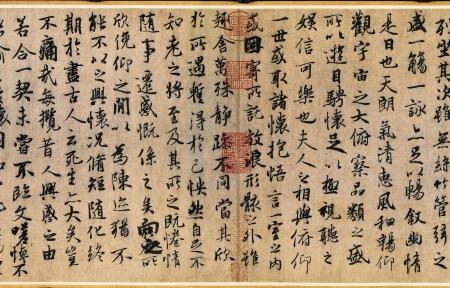 列坐其次雖無絲竹管弦之
盛一觴一詠亦足以暢敘幽情
是日也天朗氣清惠風和暢仰
觀宇宙之大俯察品類之盛
所以遊目騁懷足以極視聽之
娛信可樂也夫人之相與俯仰
一世或取諸懷抱悟言一室之內
或因寄所託放浪形骸之外雖
趣舍萬殊靜躁不同當其欣
於所遇暫得於己怏然自足不
知老之將至及其所之既惓情
隨事遷感慨係之矣向之所
欣俛仰之間以為陳跡猶不
能不以之興懷況脩短隨化終
期於盡古人云死生亦大矣豈
不痛哉每攬昔人興感之由
若合一契未嘗不臨文嗟悼不